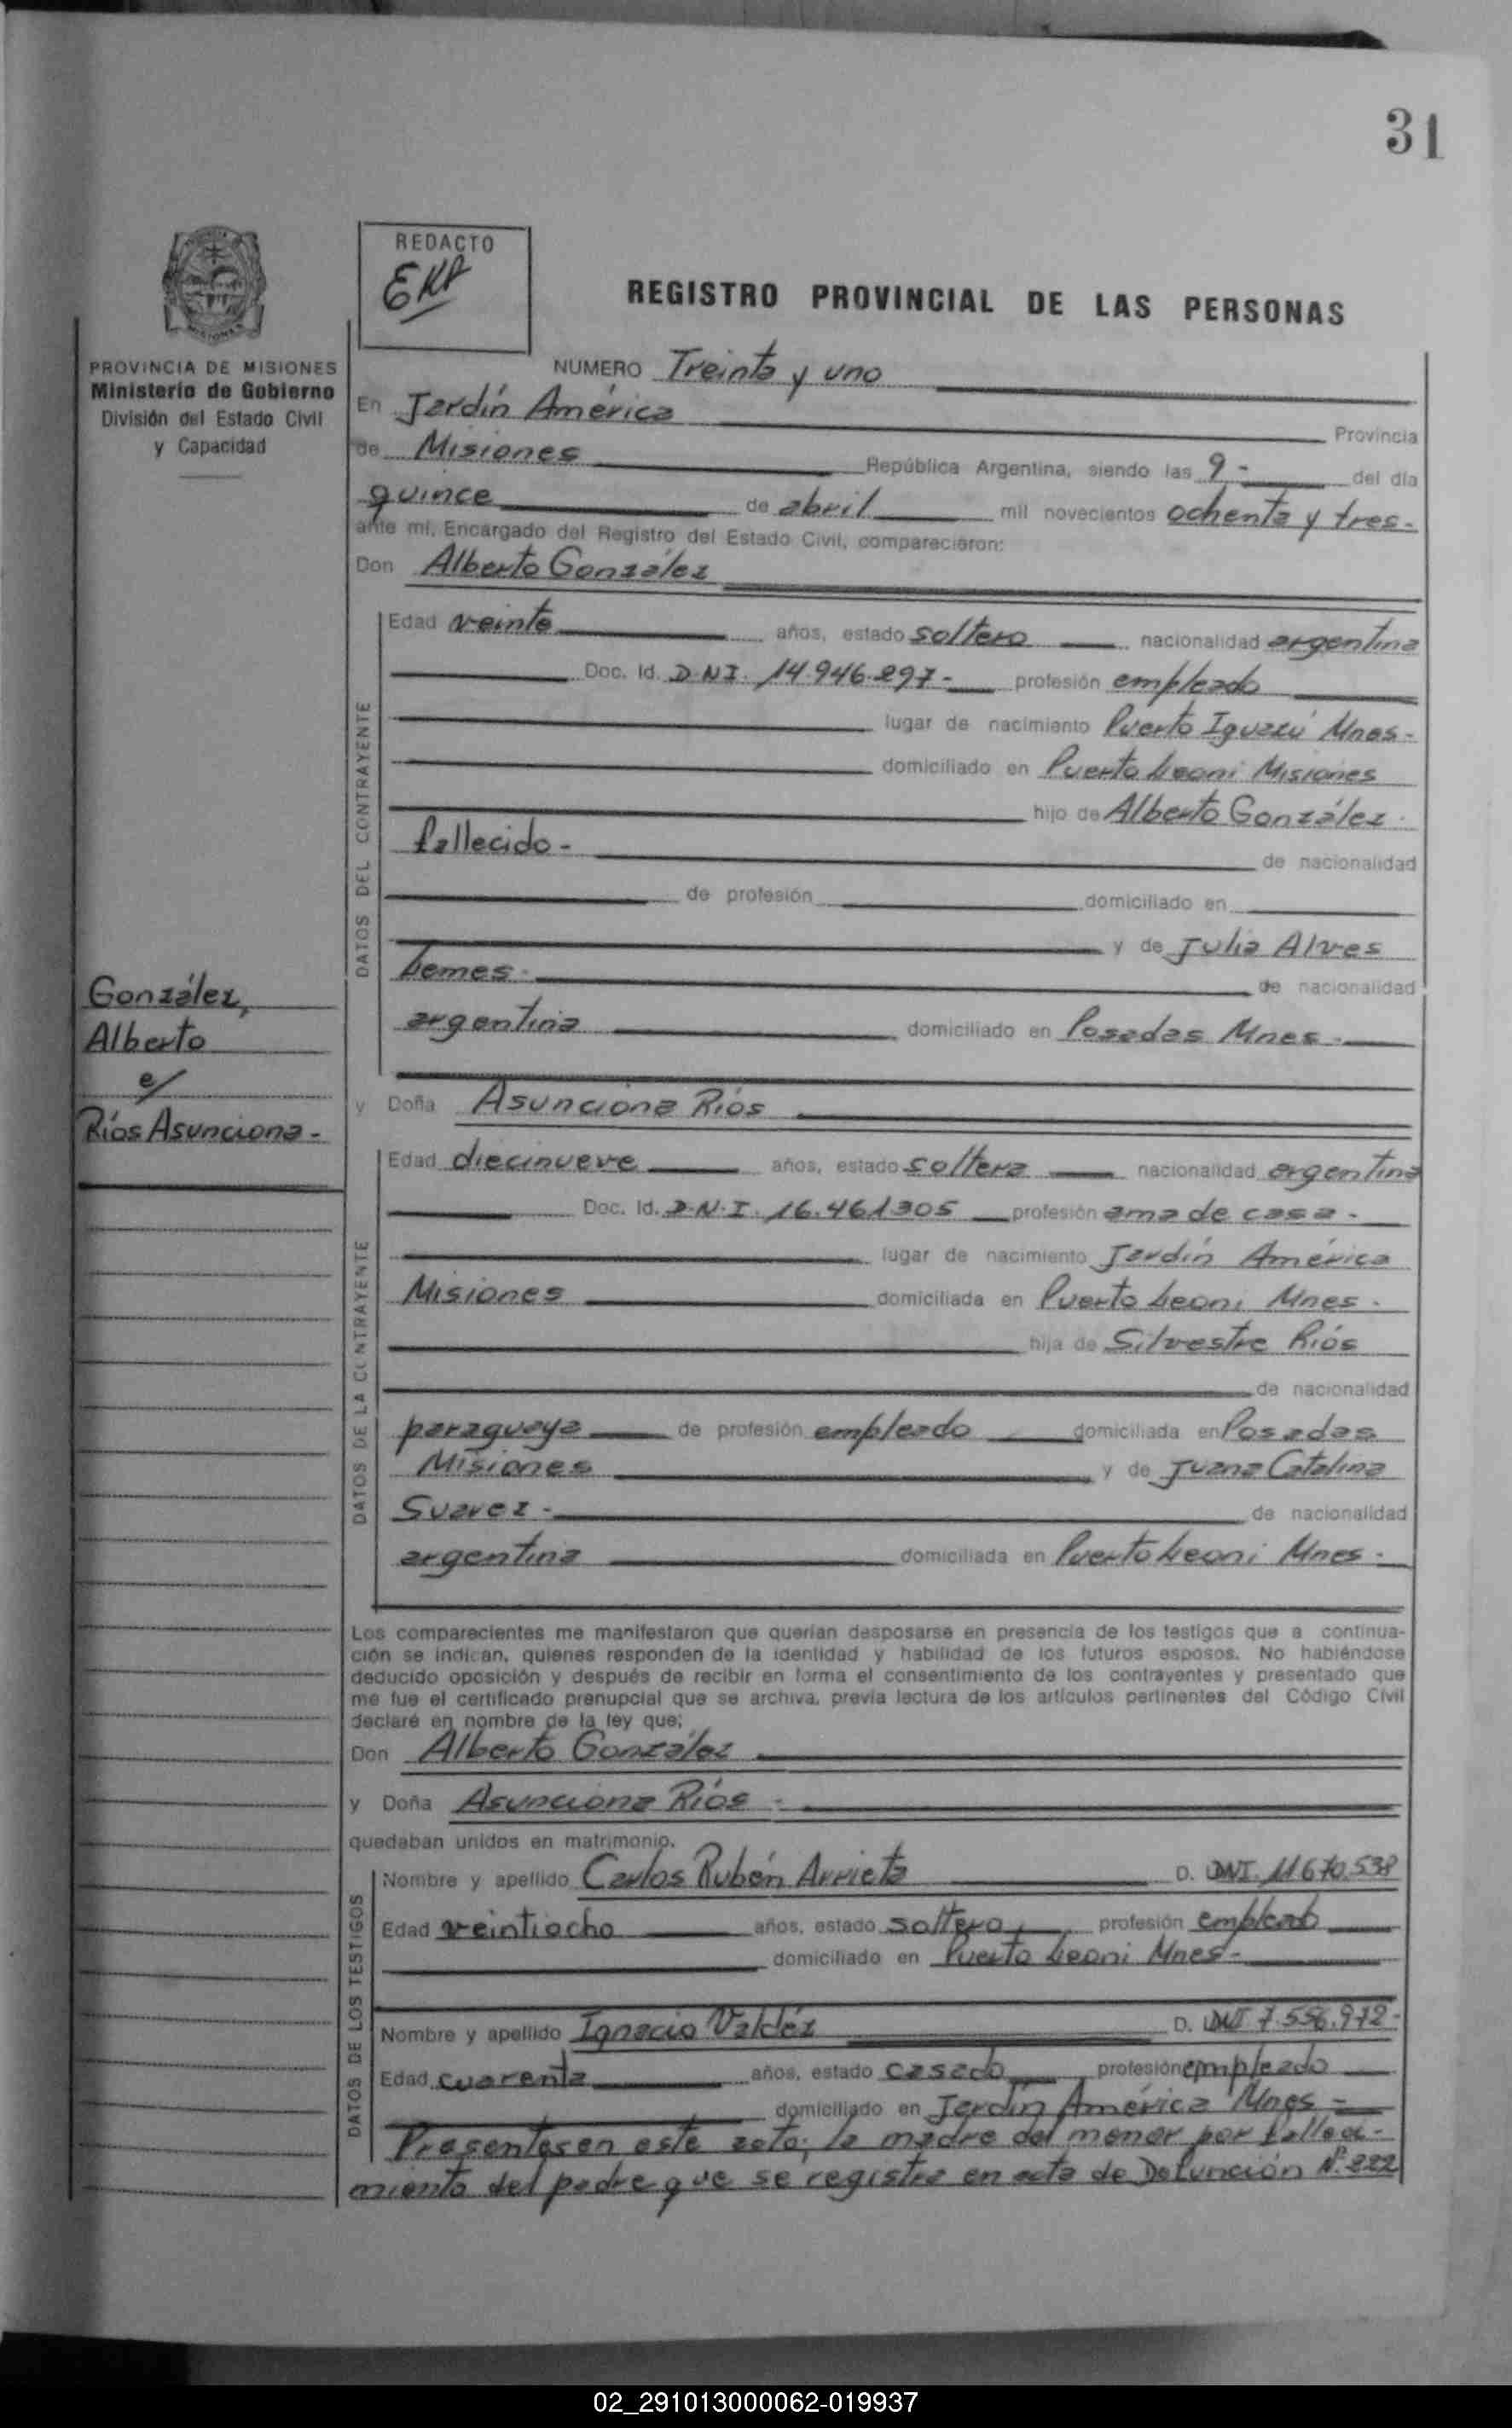 31
REDACTO
EKA
REGISTRO PROVINCIAL DE LAS PERSONAS
PROVINCIA DE MISIONES
Ministerio de Gobierno
División del Estado Civil
y Capacidad
NUMERO Treinta y uno
En Jardín América Provincia
de Misiones República Argentina, siendo las 9 - del día
quince de abril mil novecientos ochenta y tres.
ante mí, Encargado del Registro del Estado Civil, comparecieron:
Don Alberto González
DATOS DEL CONTRAYENTE
Edad veinte años, estado soltero nacionalidad argentina
Doc. Id. D.N.I. 14.946.297- profesión empleado
lugar de nacimiento Puerto Iguazú Mnes-
domiciliado en Puerto Leoni Misiones
hijo de Alberto González.
fallecido - de nacionalidad
de profesión domiciliado en
y de Julia Alves
Lemes. de nacionalidad
argentina domiciliado en Posadas Mnes.
González,
Alberto
e/
Ríos Asunciona-
y Doña Asunciona Ríos
DATOS DE LA CONTRAYENTE
Edad diecinueve años, estado soltera nacionalidad argentina
Doc. Id. D.N.I. 16.461305 profesión ama de casa.
lugar de nacimiento Jardín América
Misiones domiciliada en Puerto Leoni Mnes.
hija de Silvestre Ríos
de nacionalidad
paraguaya de profesión empleado domiciliada en Posadas
Misiones y de Juana Catalina
Suarez- de nacionalidad
argentina domiciliada en Puerto Leoni Mnes.
Los comparecientes me manifestaron que querían desposarse en presencia de los testigos que a continua-
ción se indican, quienes responden de la identidad y habilidad de los futuros esposos. No habiéndose
deducido oposición y después de recibir en forma el consentimiento de los contrayentes y presentado que
me fue el certificado prenupcial que se archiva, previa lectura de los artículos pertinentes del Código Civil
declaré en nombre de la ley que;
Don Alberto González
y Doña Asunciona Ríos -
quedaban unidos en matrimonio.
DATOS DE LOS TESTIGOS
Nombre y apellido Carlos Rubén Arrieta D. DNI. 11670.538
Edad veintiocho años, estado soltero profesión empleado
domiciliado en Puerto Leoni Mnes-
Nombre y apellido Ignacio Valdéz D. DNI 7.556.972-
Edad cuarenta años, estado casado profesión empleado
domiciliado en Jardín América Mnes-
Presentes en este acto; la madre del menor por falleci-
miento del padre que se registra en acta de Defunción Nº.222
02_291013000062-019937